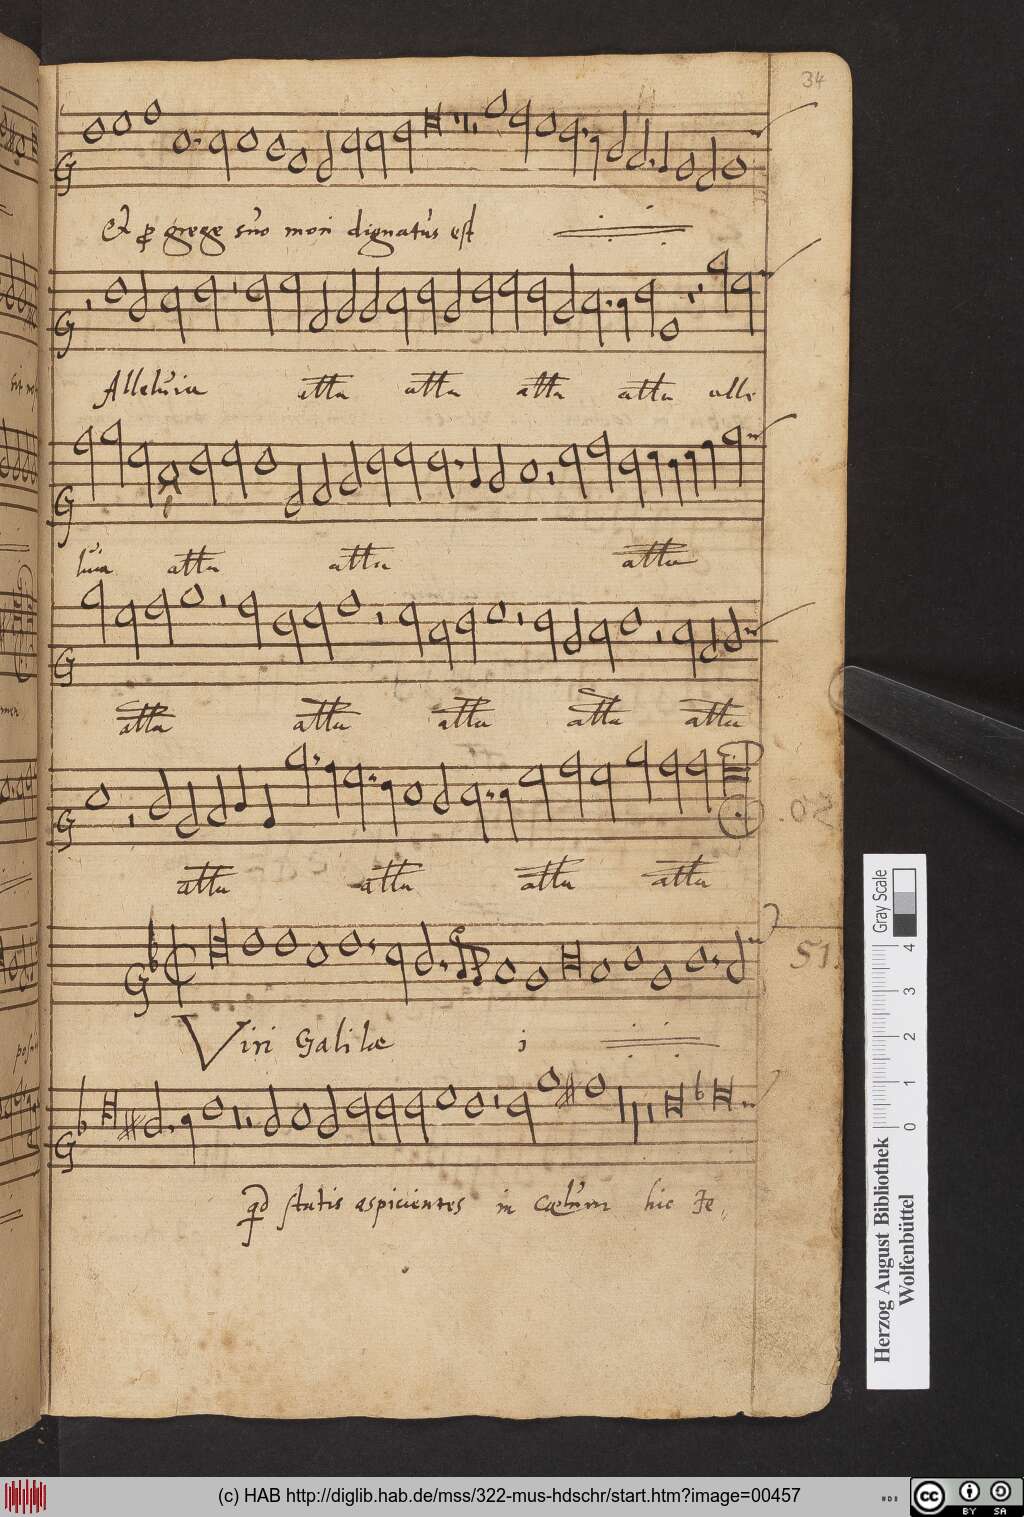 34
Et p grege suo mori dignatus est
Alleluia atta atta atta atta alle
luia atta atta atta
atta atta atta atta atta
atta atta atta atta
.05
51.
Viri Galilæ
qd statis aspicientes in cœlum hic Je
Gray Scale
0 1 2 3 4
Herzog August Bibliothek
Wolfenbüttel
(c) HAB http://diglib.hab.de/mss/322-mus-hdschr/start.htm?image=00457
cc BY SA